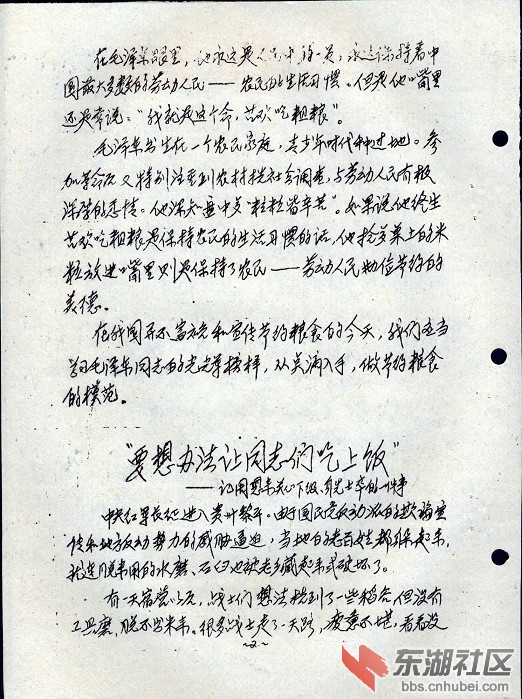 在毛泽东眼里，他永远是人民中的一员，永远保持着中
国最大多数的劳动人民——农民的生活习惯。但是他嘴里
还是常说："我就是这个命，喜欢吃粗粮"。
毛泽东出生在一个农民家庭，青少年时代种过地。参
加革命后又特别注重到农村搞社会调查，与劳动人民有极
深厚的感情。他深知盘中餐"粒粒皆辛苦"。如果说他终生
喜欢吃粗粮是保持农民的生活习惯的话，他拾起桌上的米
粒放进嘴里则是保持了农民——劳动人民勤俭节约的
美德。
在我国并不富裕和宣传节约粮食的今天，我们应当
学习毛泽东同志的光荣榜样，从点滴入手，做节约粮食
的模范。
"要想办法让同志们吃上饭"
——记周恩来关心下级、爱护士兵的一件事
中央红军长征进入贵州黎平。由于国民党反动派的欺骗宣
传和地方反动势力的威胁逼迫，当地的老百姓都躲起来，
就连脱米用的水磨、石臼也被老乡藏起来或破坏了。
有一天宿营以后，战士们想法找到了一些稻谷，但没有
工具磨，脱不出米来。很多战士走了一天路，疲惫不堪，看着没
-2-
东湖社区
bbs.cnhubei.com